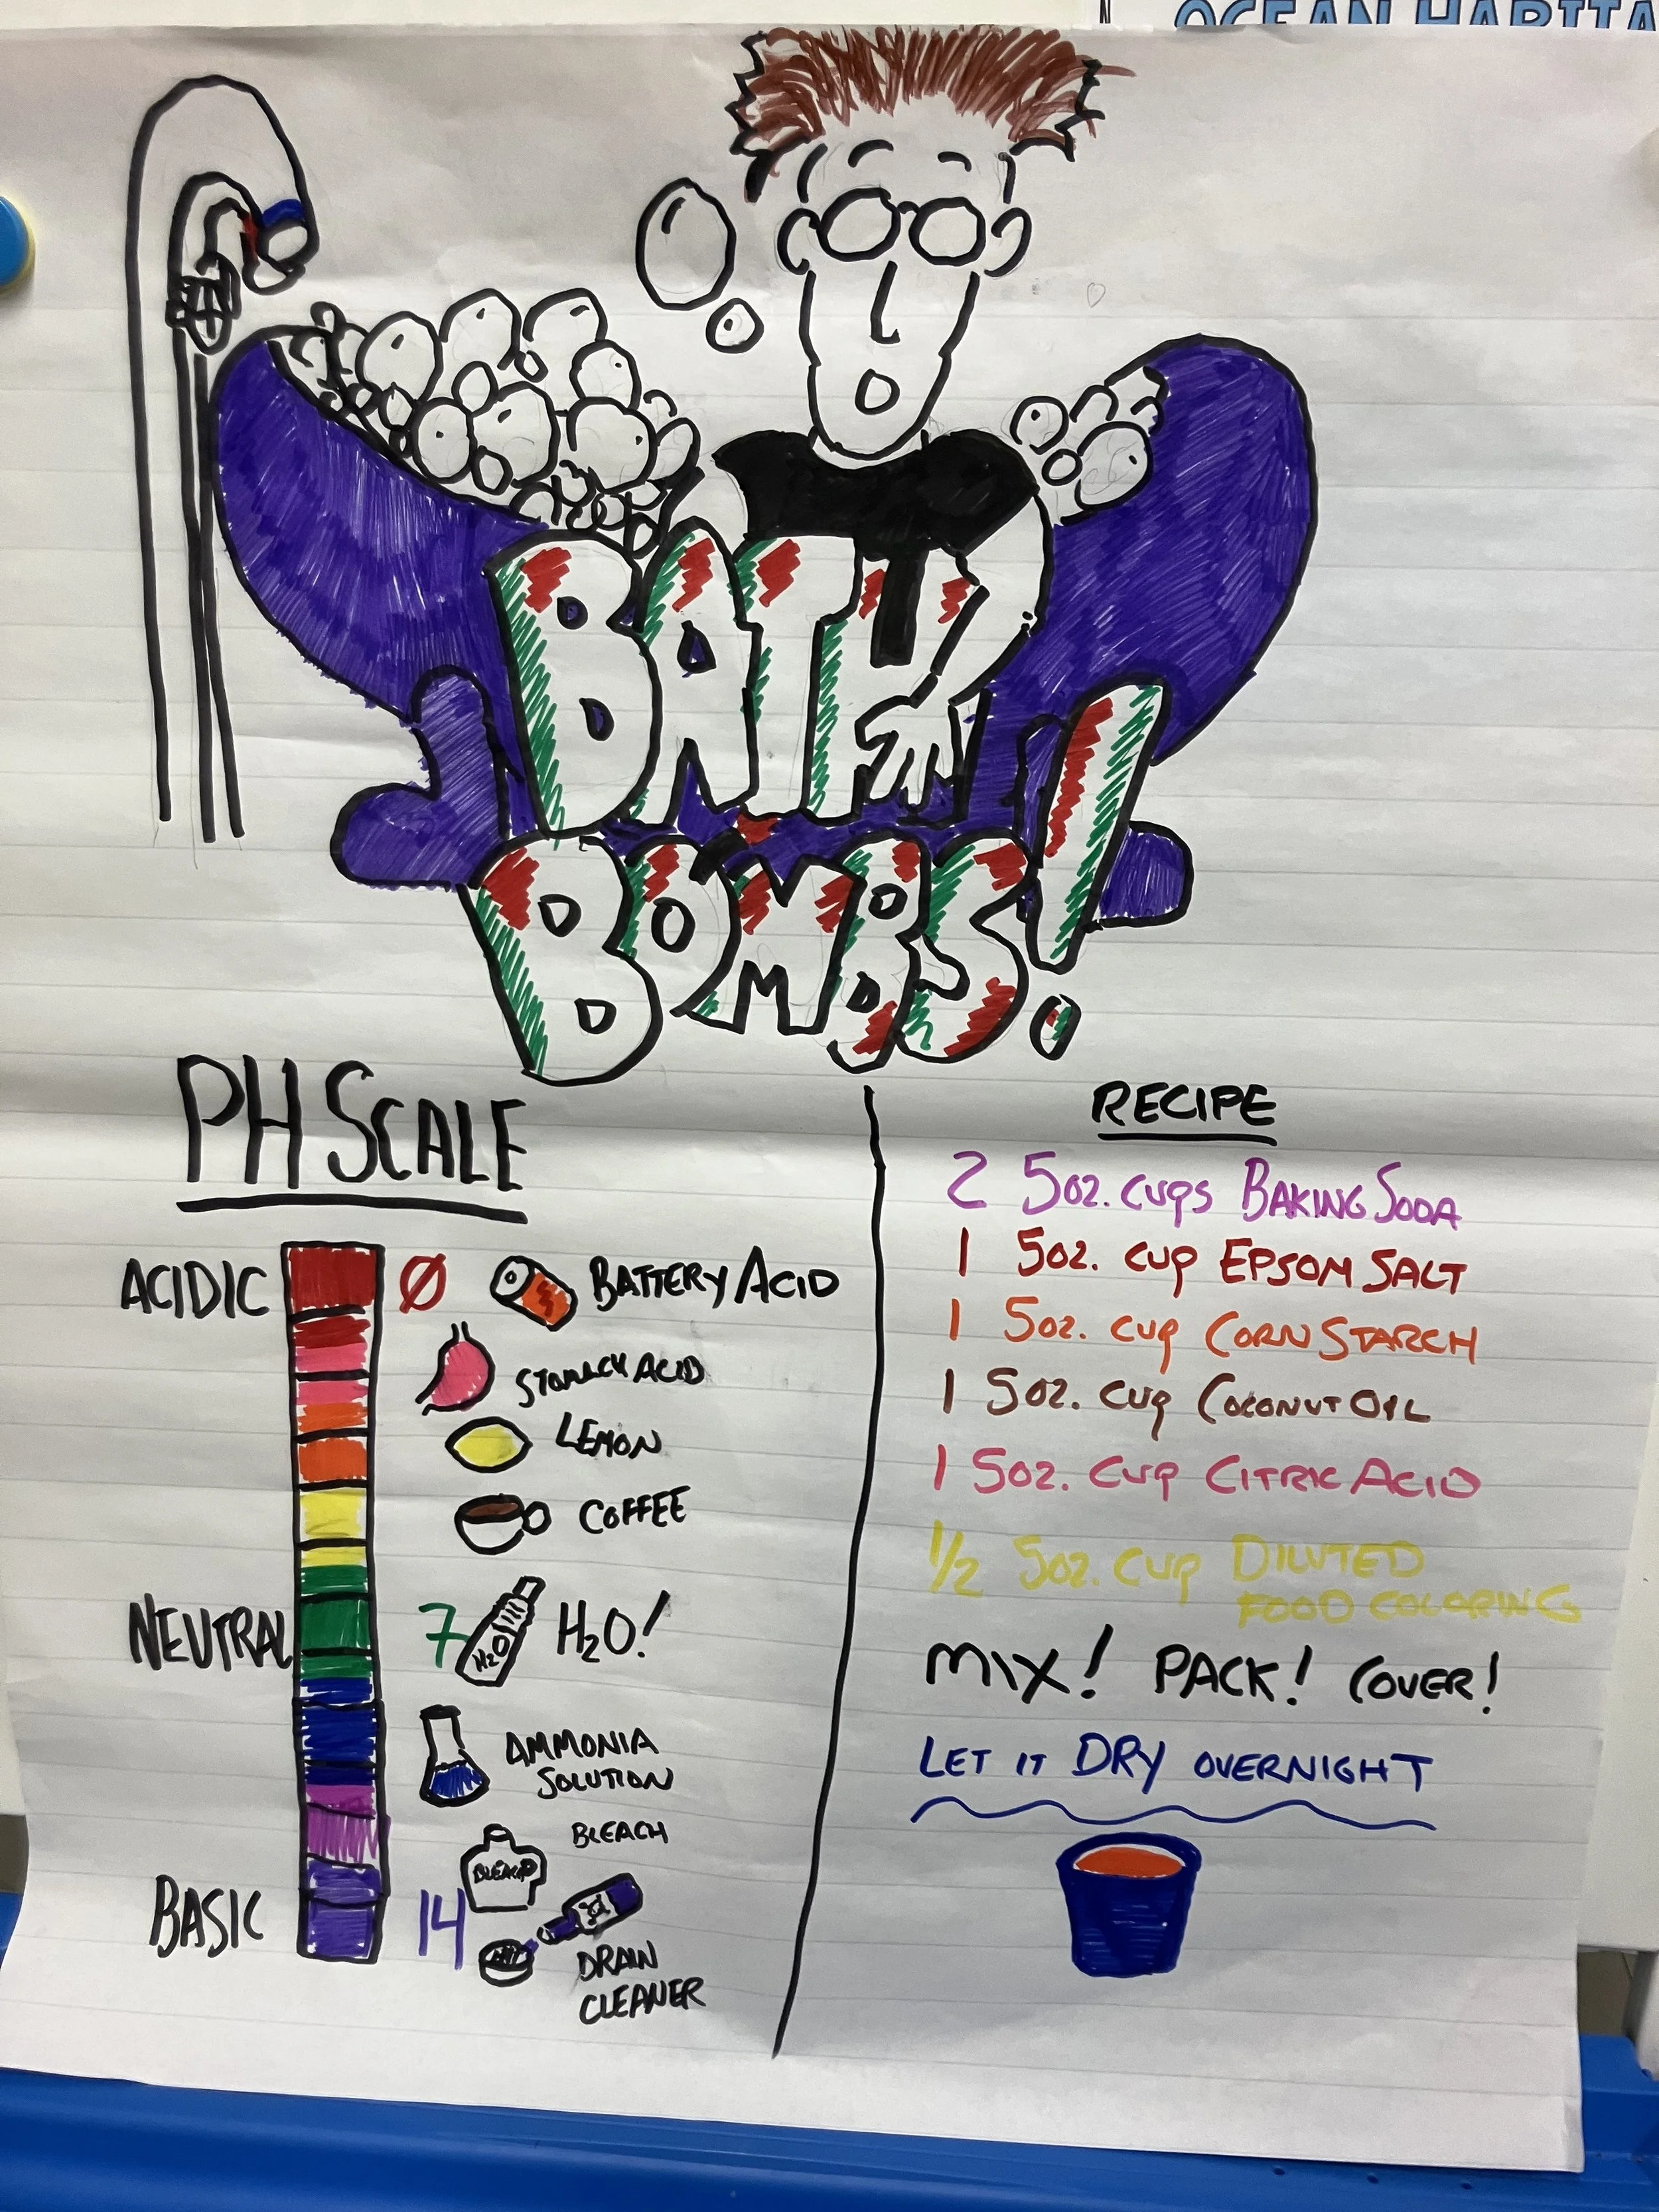 OCEAN HABITA
BATH
BOMBS!
PH SCALE
ACIDIC
0
BATTERY ACID
STOMACH ACID
LEMON
COFFEE
NEUTRAL
7
H2O
H2O!
AMMONIA
SOLUTION
BLEACH
BLEACH
BASIC
14
DRAIN
CLEANER
RECIPE
2 5oz. cups BAKING SODA
1 5oz. cup EPSOM SALT
1 5oz. cup CORN STARCH
1 5oz. cup COCONUT OIL
1 5oz. cup CITRIC ACID
1/2 5oz. cup DILUTED
FOOD COLORING
MIX! PACK! COVER!
LET IT DRY OVERNIGHT